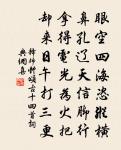 眼空四海恣縱橫
鼻孔遼天信腳行
拿得電光為火把
卻來日午打三更
禪林軒頌古十四首詞
典偈喜